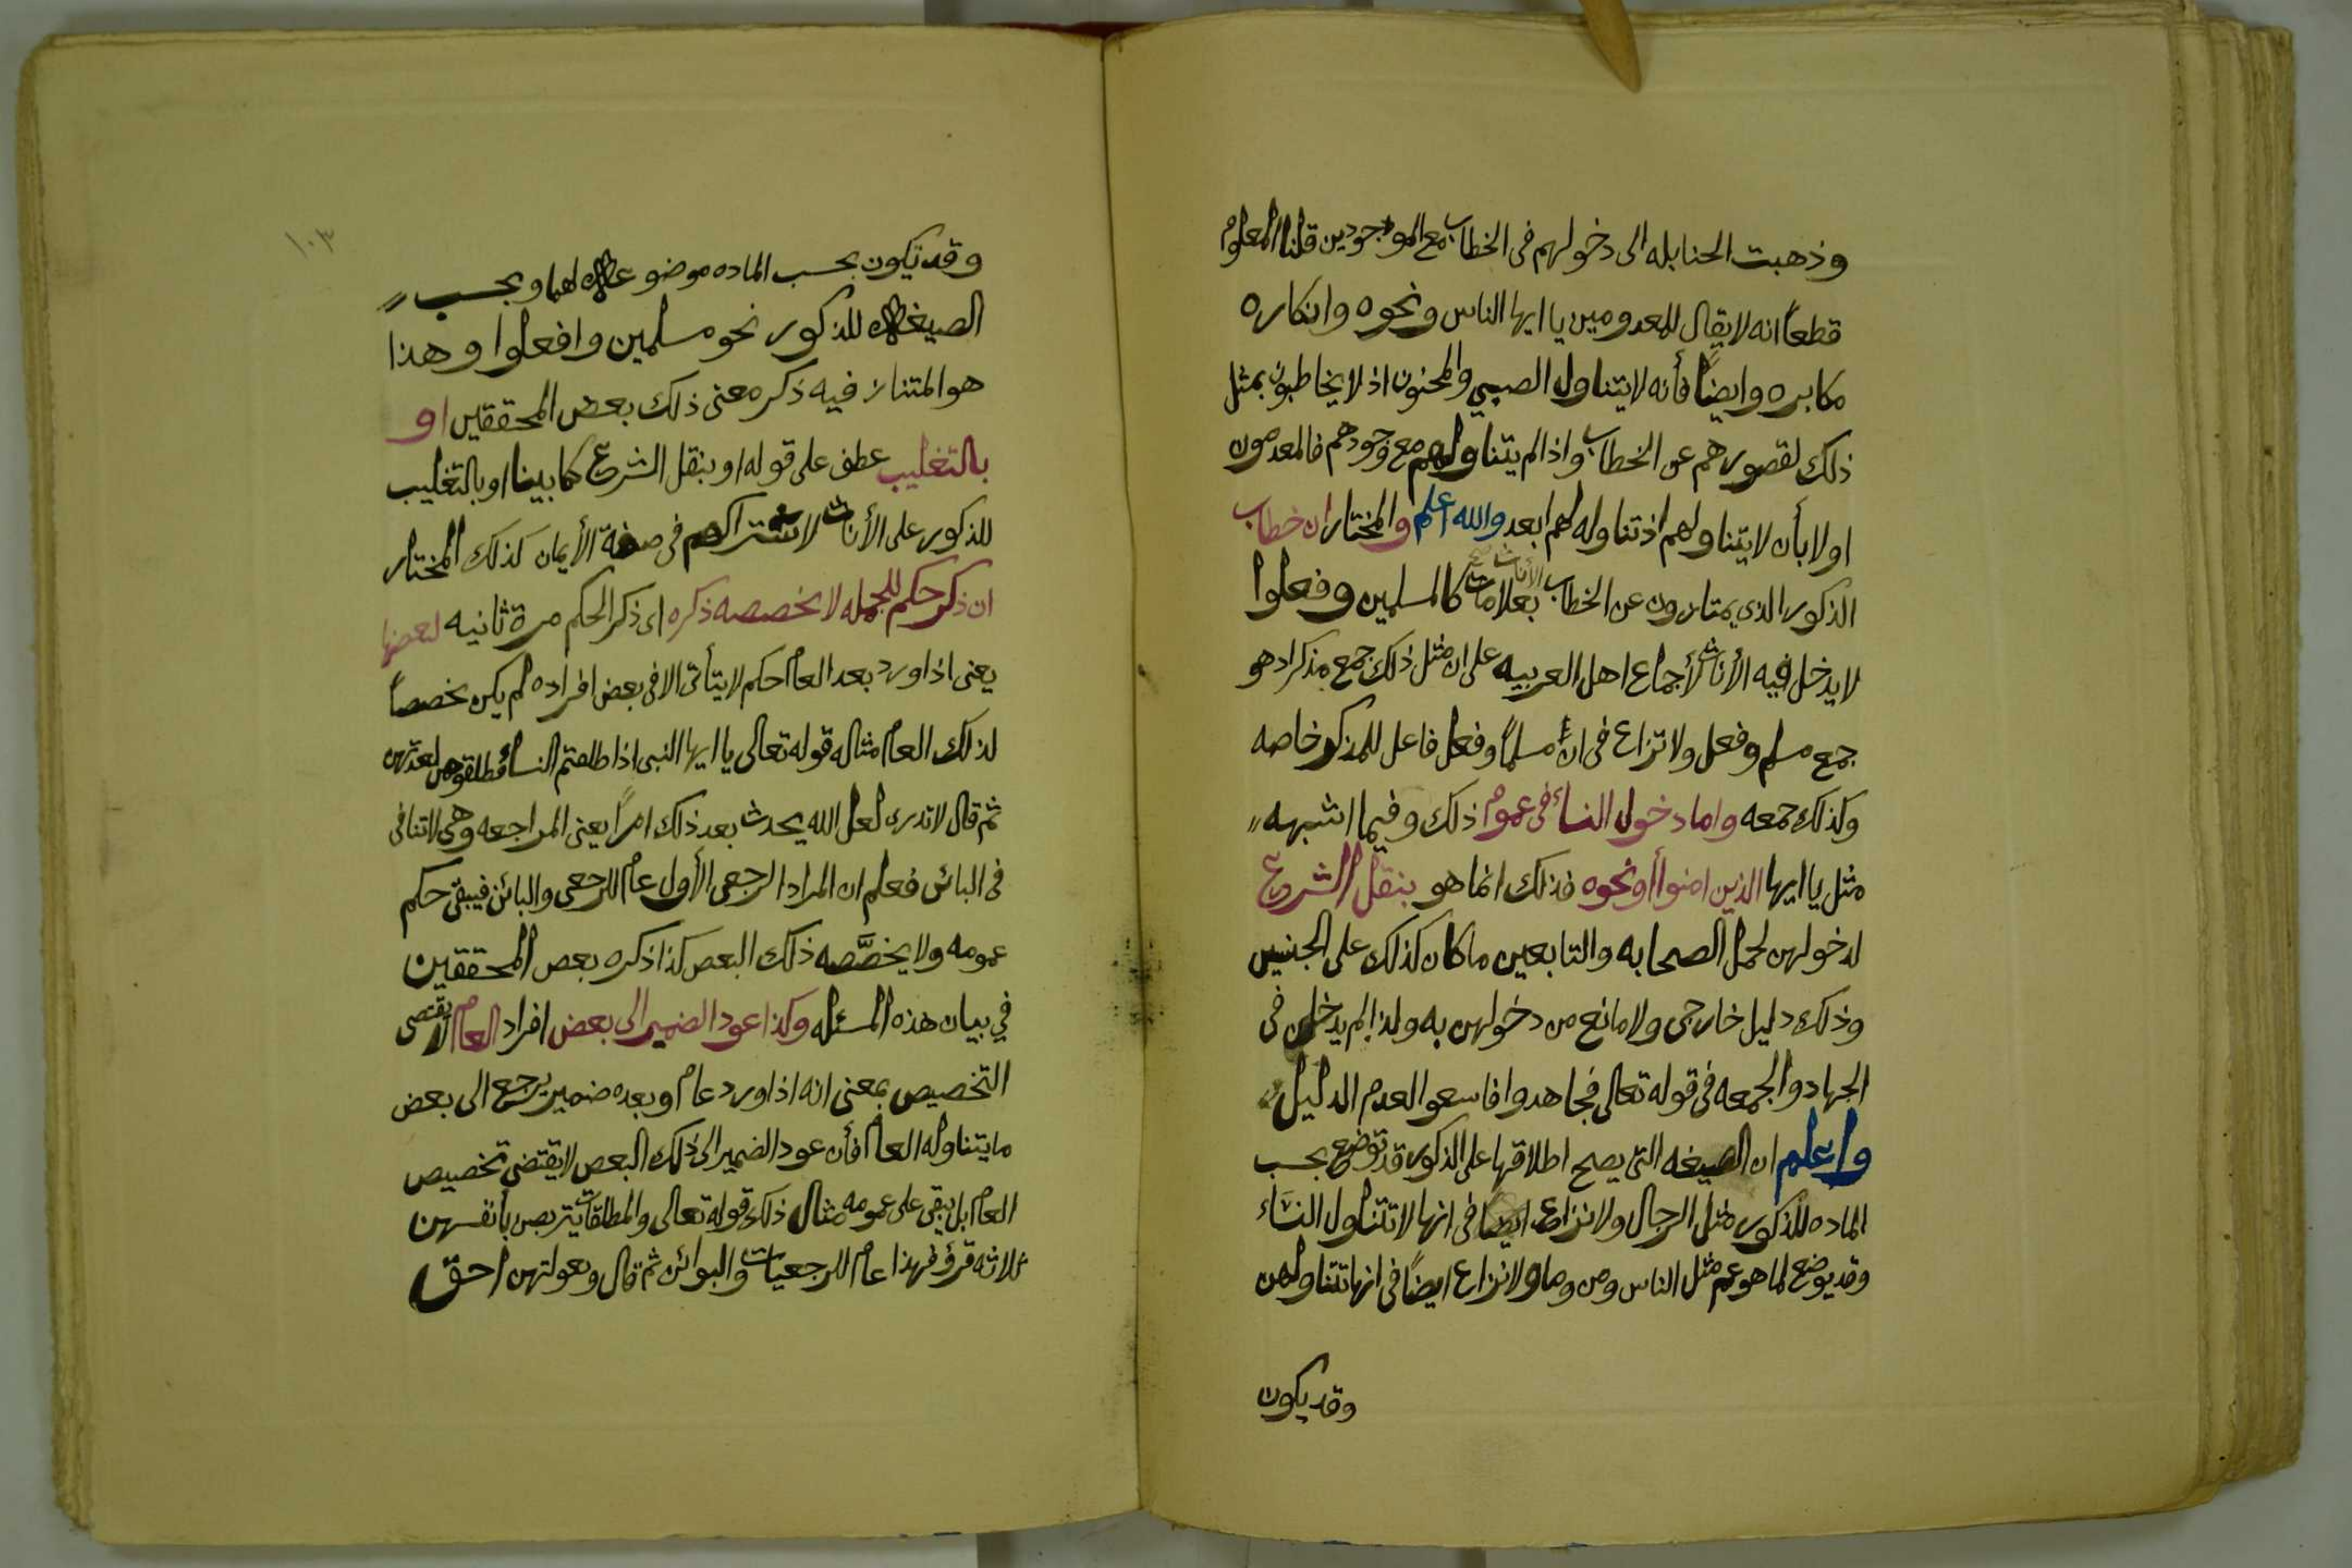 وذهبت الحنابله الى دخولهم فى الخطاب مع الموجودين قلنا المعلوم
قطعاً انه لا يقال للمعدومين يا ايها الناس ونحوه وانكاره
مكابره وايضاً فأنه لا يتناول الصبي والمجنون اذ لا يخاطبون بمثل
ذلك لقصورهم عن الخطاب واذا لم يتناولهم مع وجودهم فالمعدمون
اولا بأن لا يتناولهم اذ تناوله لهم ابعد والله اعلم والمختار ان خطاب
الذكور الذي يمتازون عن الخطاب الأناث صح بعلامات كالمسلمين وفعلوا
لا يدخل فيه الأناث لأجماع اهل العربيه على ان مثل ذلك جمع مذكر اذ هو
جمع مسلم وفعل ولا نزاع فى انّ مسلماً وفعل فاعل للمذكر خاصه
وكذلك جمعه واما دخول النساء فى عموم ذلك وفيما اشبهه
مثل يا ايها الذين امنوا أو نحوه فذلك انما هو بنقل الشرع
لدخولهن لحمل الصحابه والتابعين ما كان كذلك على الجنسين
وذلك دليل خارجى ولا مانع من دخولهن به ولذا لم يدخلن فى
الجهاد والجمعه فى قوله تعالى فجاهدوا فاسعوا لعدم الدليل
واعلم ان الصيغه التى يصح اطلاقها على الذكور قد توضع بحسب
الماده للذكور مثل الرجال ولا نزاع ايضا فى انها لا تتناول النساء
وقد يوضع لما هو عم مثل الناس ومن وما ولا نزاع ايضاً فى انها تتناولهن
وقد يكون
١٠٣
وقد تكون بحسب الماده موضوعه لهما وبحسب
الصيغه للذكور نحو مسلمين وافعلوا وهذا
هو المتنازع فيه ذكر معنى ذلك بعض المحققين او
بالتغليب عطف على قوله او بنقل الشرع كما بينا او بالتغليب
للذكور على الأناث لاشتراكهم فى صفة الأيمان كذلك المختار
ان ذكر حكم للجمله لا يخصصه ذكره اى ذكر الحكم مرة ثانيه لبعضها
يعنى اذا ورد بعد العام حكم لا يتأتى الا فى بعض افراده لم يكن مخصصاً
لذلك العام مثاله قوله تعالى يا ايها النبى اذا طلقتم النساء فطلقوهن لعدتهن
ثم قال لا تدرى لعل الله يحدث بعد ذلك امراً يعنى المراجعه وهى لا تتأتى
فى البائن فعلم ان المراد الرجعى الأول عام للرجعى والبائن فيبقى حكم
عمومه ولا يخصَّصه ذلك البعض كذا ذكره بعض المحققين
في بيان هذه المسئله وكذا عود الضمير الى بعض افراد العام لا يقتضى
التخصيص بمعنى انه اذا ورد عام وبعده ضمير يرجع الى بعض
ما يتناوله العام فأن عود الضمير الى ذلك البعض لا يقتضى تخصيص
العام بل يبقى على عمومه مثال ذلك قوله تعالى والمطلقات يتربصن بأنفسهن
ثلاثه قرؤ فهذا عام للرجعيات والبوائن ثم قال وبعولتهن احق